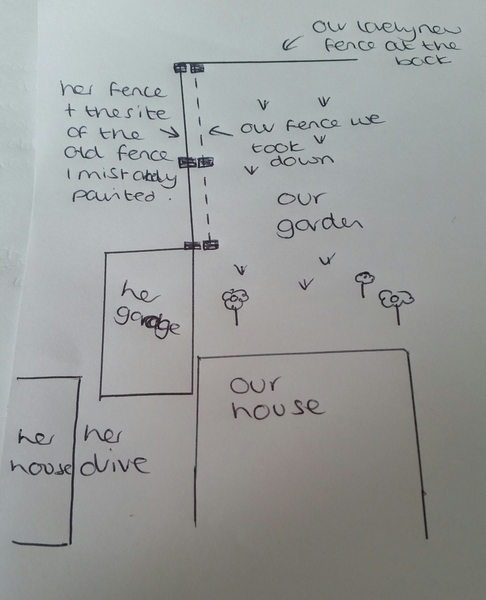 our lovely new
fence at the
back
her fence
+ the site
of the
old fence
I mistakenly
painted.
our fence we
took
down
our
garden
her
garage
our
house
her
house
her
drive